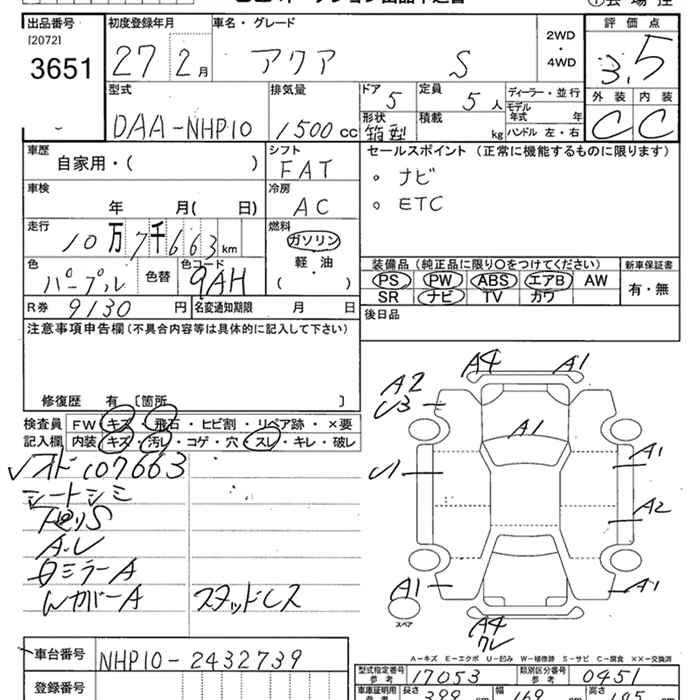 出品番号 初度登録年月 車名・グレード 2WD・4WD 評価点
[2072]
3651 27 2月 アクア S 3.5
型式 排気量 ドア 定員 ディーラー・並行 外装 内装
DAA-NHP10 1500cc 5 5人 モデル年式 年 C C
形状 箱型 積載 kg ハンドル 左・右
車歴 シフト セールスポイント (正常に機能するものに限ります)
自家用・( ) FAT 。ナビ
車検 冷房 。ETC
年 月( 日) AC
走行 燃料
10万7千663km ガソリン
軽・油
( )
色 色替 色コード 装備品(純正品に限り○をつけてください) 新車保証書
パープル 9AH PS PW ABS エアB AW 有・無
SR ナビ TV カワ
R券 9130円 名変通知期限 月 日 後日品
注意事項申告欄(不具合内容等は具体的に記入して下さい)
修復歴 有 [箇所 ]
検査員 FW キズ・飛石・ヒビ割・リペア跡・×要
記入欄 内装 キズ・汚レ・コゲ・穴・スレ・キレ・破レ
107663
シートシミ
A・U
ミラーA
スタッドレス
A4 A1
A2
U3
A1
U1 A1
A2
A1 A1
スペア
A4
ワレ
A-キズ E-エクボ U-凹み W-補修跡 S-サビ C-腐食 ××-交換済
車台番号 NHP10-2432739
型式指定番号 参考 17053 類別区分番号 参考 0451
登録番号
車庫証明用 参考 長さ 399cm 幅 169cm 高さ